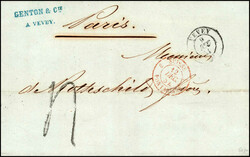 GENTON & Cie
A VEVEY.
Paris.
VEVEY
Messieurs
de Rothschild frères